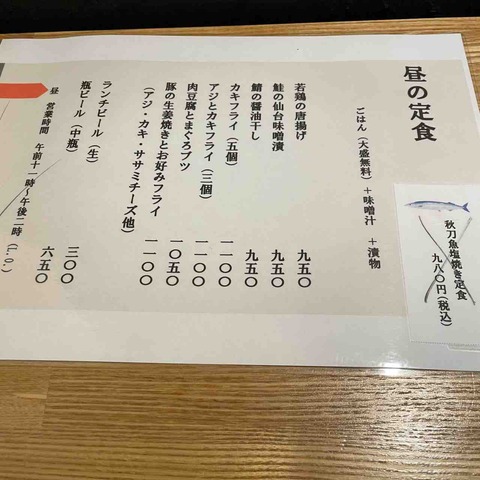 昼の定食
ごはん（大盛無料）＋味噌汁　＋漬物
若鶏の唐揚げ　九五〇
鮭の仙台味噌漬　九五〇
鯖の醤油干し　九五〇
カキフライ（五個）　一一〇〇
アジとカキフライ（三個）　一一〇〇
肉豆腐とまぐろブツ　一〇五〇
豚の生姜焼きとお好みフライ
（アジ・カキ・ササミチーズ他）　一一〇〇
ランチビール（生）　三〇〇
瓶ビール（中瓶）　六五〇
昼　営業時間　午前十一時～午後二時（L.O.）
秋刀魚塩焼き定食
九八〇円（税込）